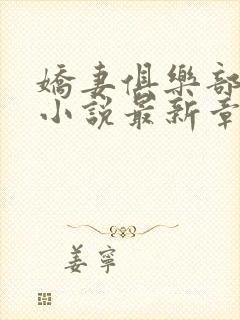 嬌妻俱樂部
小說最新章
姜寧